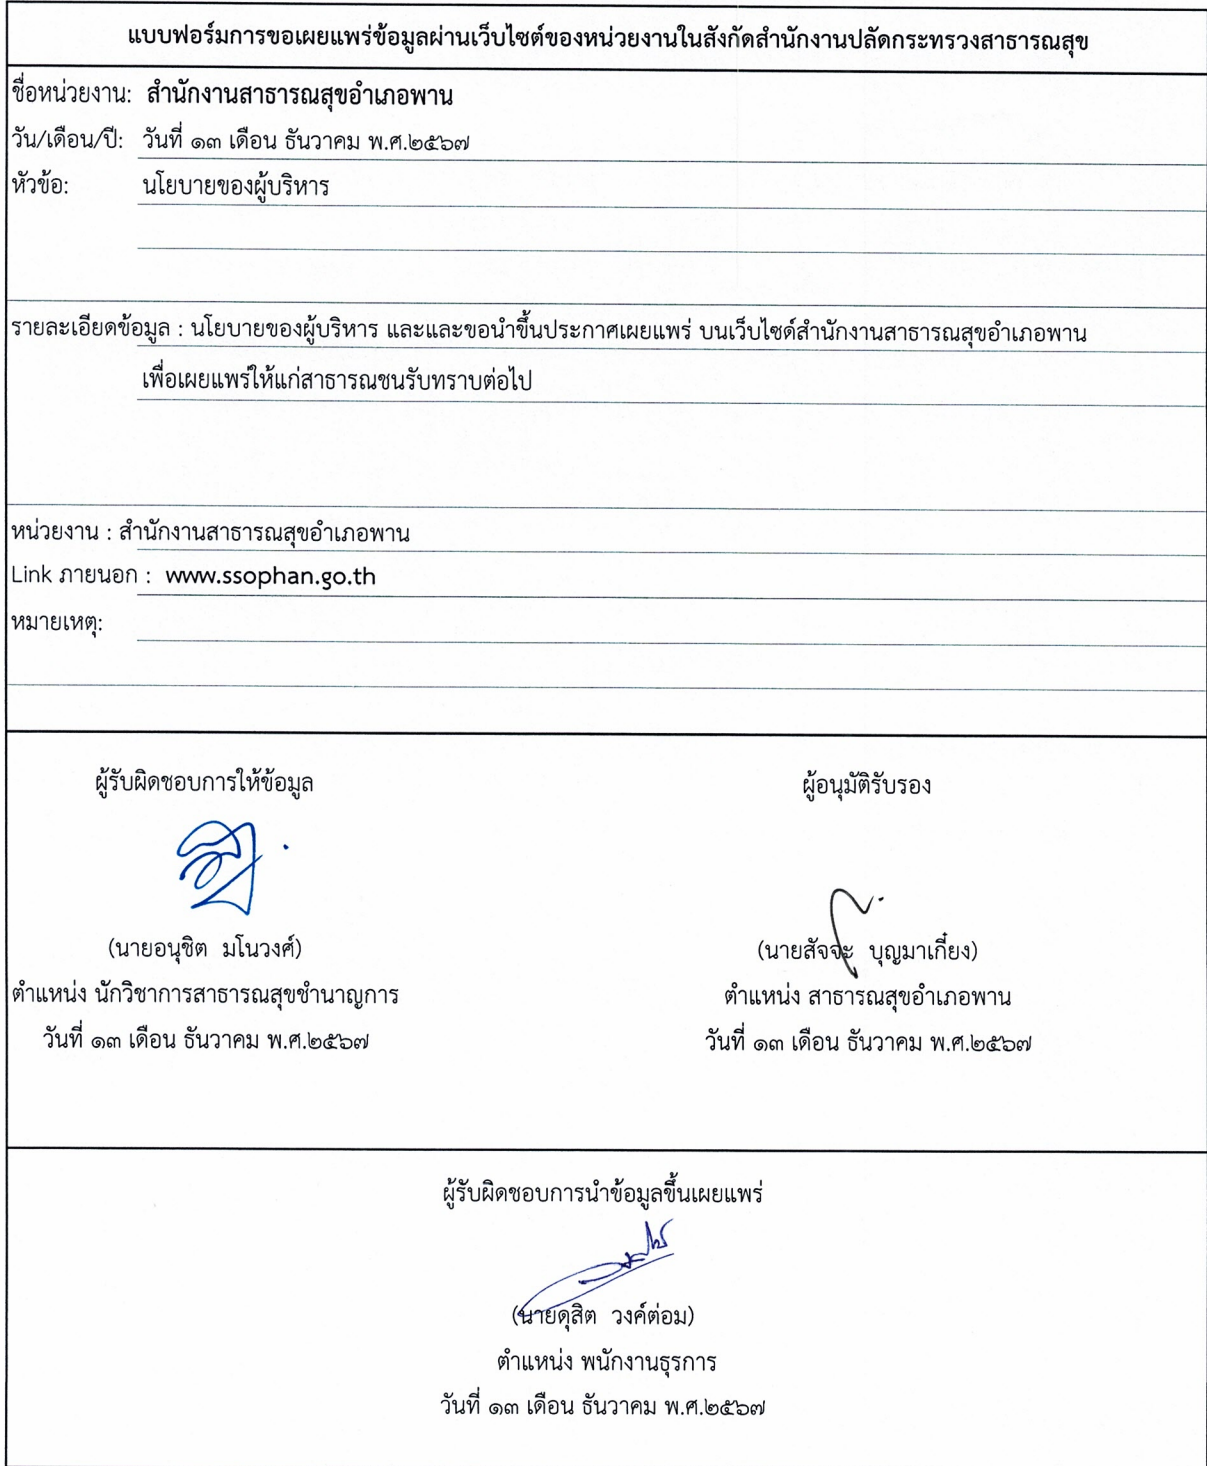 แบบฟอร์มการขอเผยแพร่ข้อมูลผ่านเว็บไซต์ของหน่วยงานในสังกัดสำนักงานปลัดกระทรวงสาธารณสุข
ชื่อหน่วยงาน: สำนักงานสาธารณสุขอำเภอพาน
วัน/เดือน/ปี: วันที่ ๑๓ เดือน ธันวาคม พ.ศ.๒๕๖๗
หัวข้อ: นโยบายของผู้บริหาร
รายละเอียดข้อมูล : นโยบายของผู้บริหาร และและขอนำขึ้นประกาศเผยแพร่ บนเว็บไซด์สำนักงานสาธารณสุขอำเภอพาน
เพื่อเผยแพร่ให้แก่สาธารณชนรับทราบต่อไป
หน่วยงาน : สำนักงานสาธารณสุขอำเภอพาน
Link ภายนอก : www.ssophan.go.th
หมายเหตุ:
ผู้รับผิดชอบการให้ข้อมูล
(นายอนุชิต มโนวงศ์)
ตำแหน่ง นักวิชาการสาธารณสุขชำนาญการ
วันที่ ๑๓ เดือน ธันวาคม พ.ศ.๒๕๖๗
ผู้อนุมัติรับรอง
(นายสัจจะ บุญมาเกี๋ยง)
ตำแหน่ง สาธารณสุขอำเภอพาน
วันที่ ๑๓ เดือน ธันวาคม พ.ศ.๒๕๖๗
ผู้รับผิดชอบการนำข้อมูลขึ้นเผยแพร่
(นายดุสิต วงค์ต่อม)
ตำแหน่ง พนักงานธุรการ
วันที่ ๑๓ เดือน ธันวาคม พ.ศ.๒๕๖๗